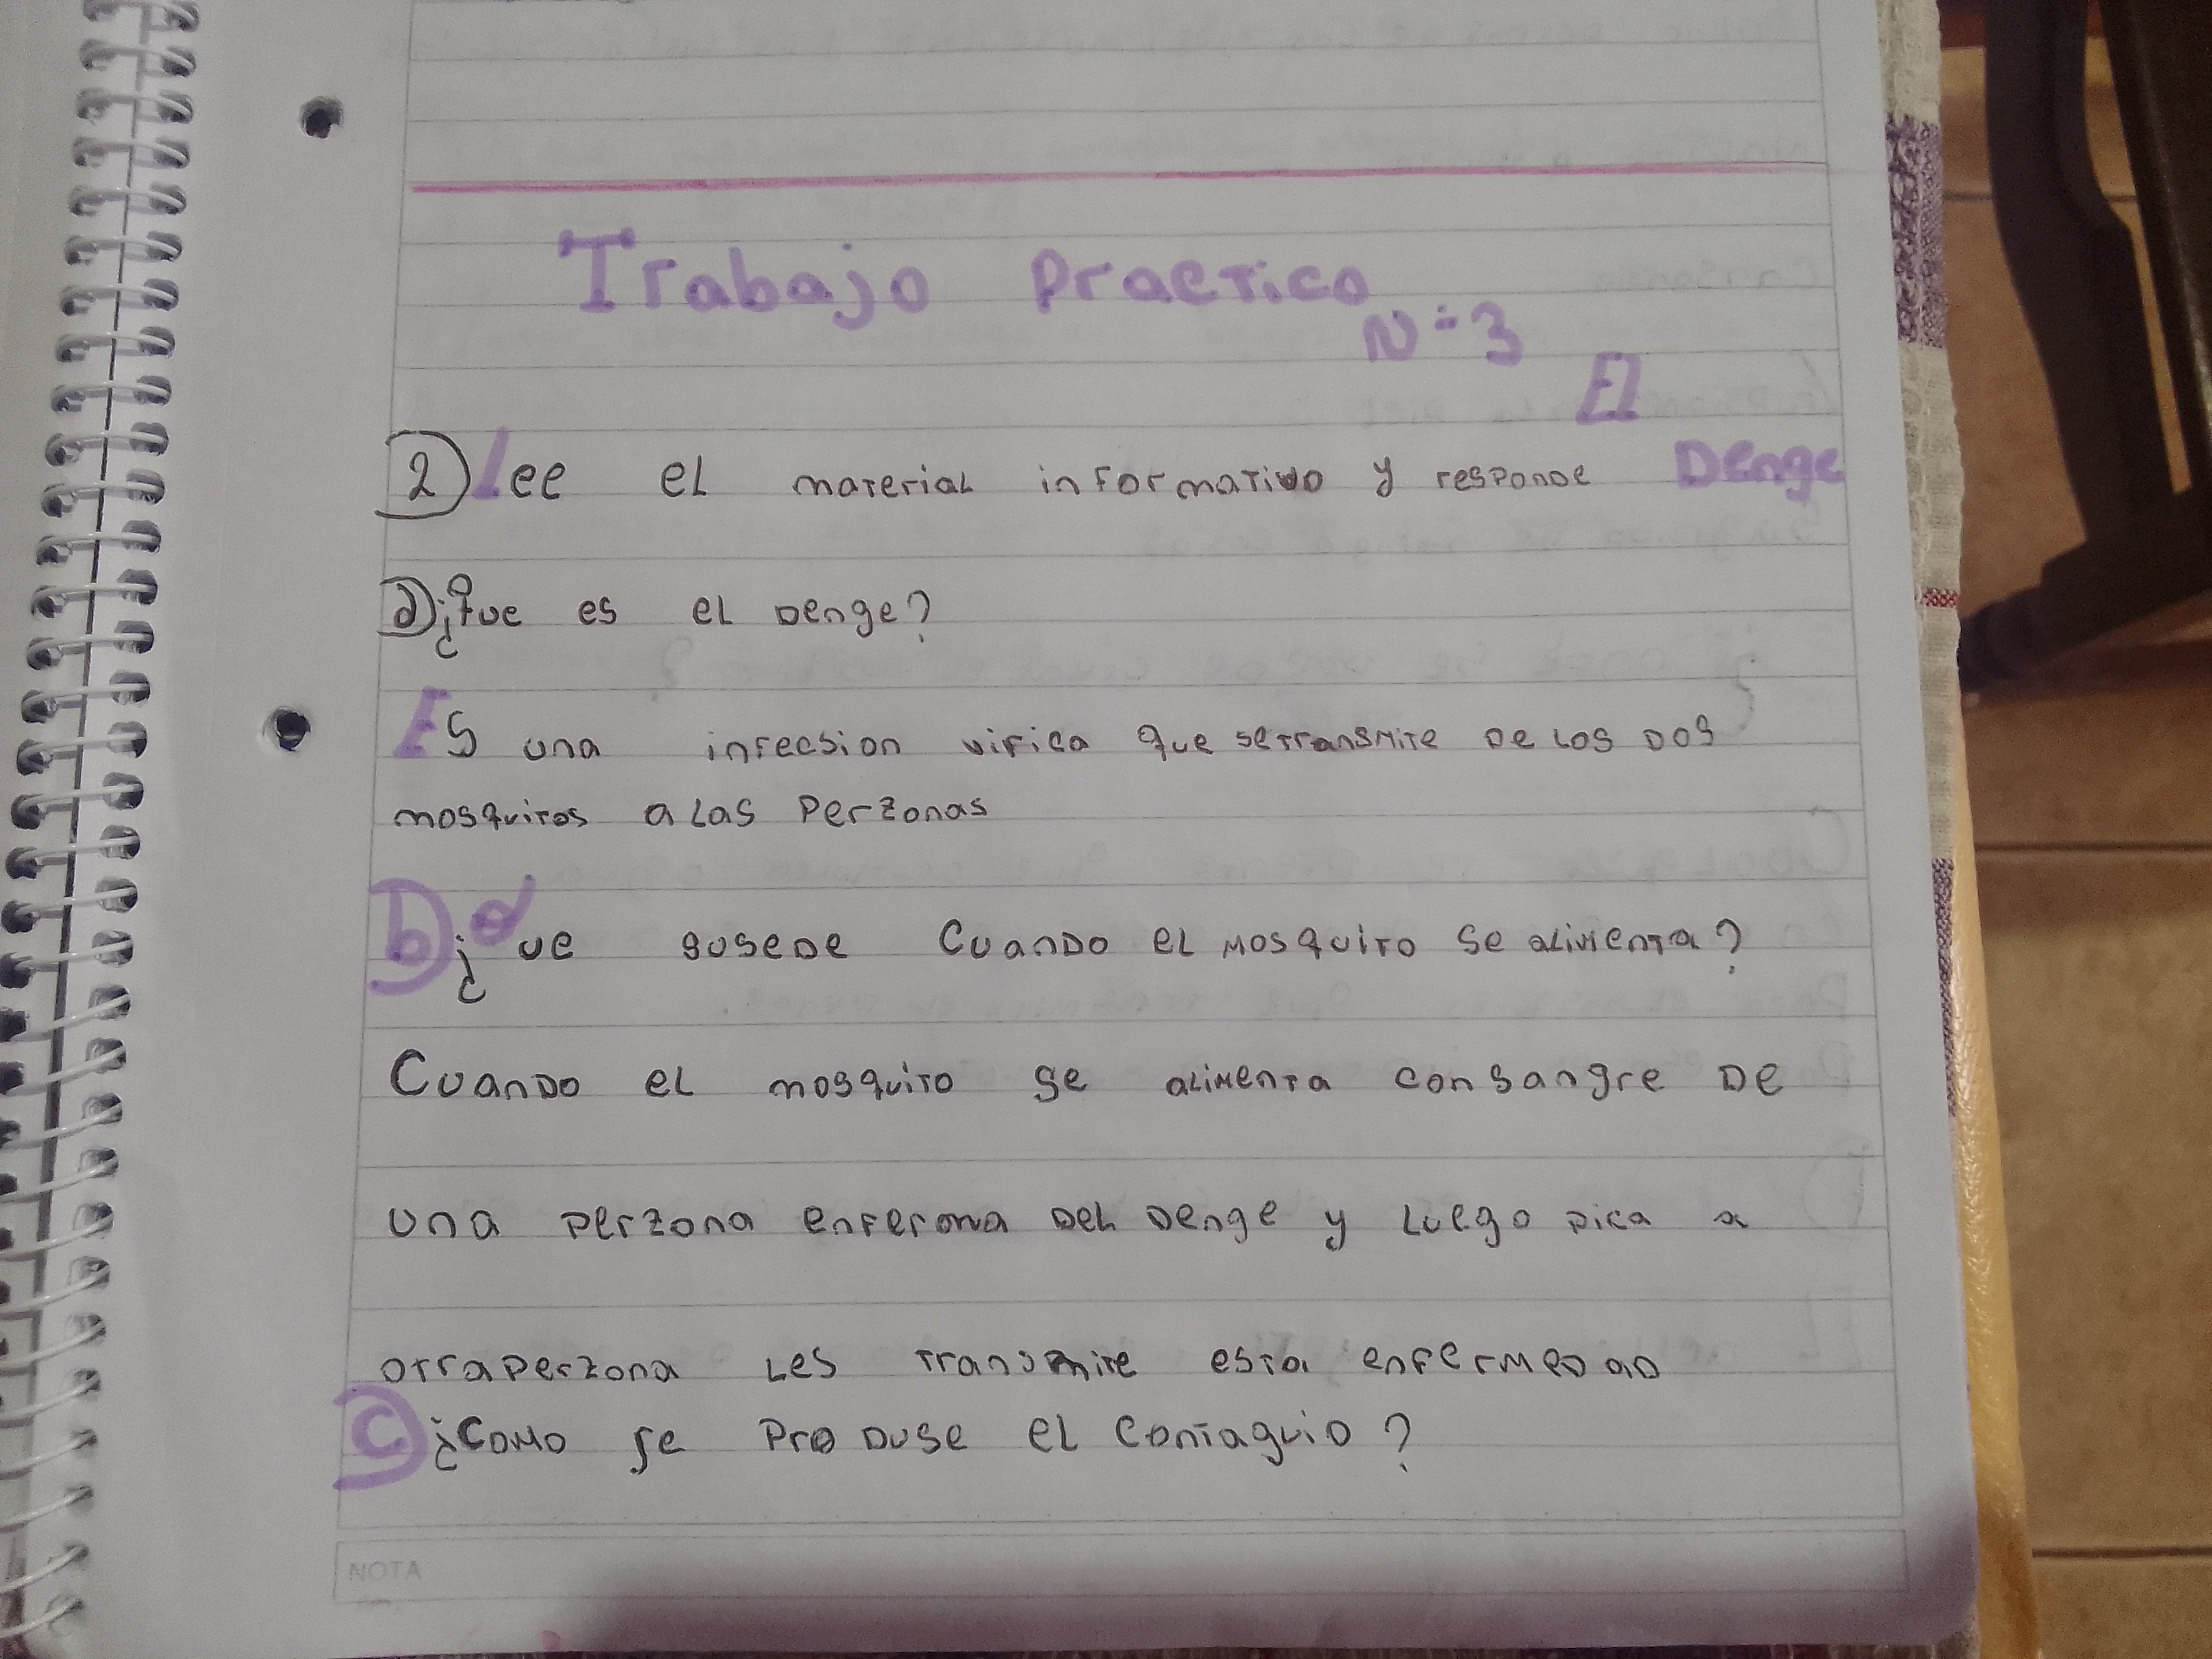 Trabajo Practico
N÷3
El
2) Lee el material informativo y responde Denge
a) ¿Que es el Denge?
Es una infecsion vifica que setransmite De Los Dos
mosquitos a Las Perzonas
b) ¿Que susede Cuando el mosquito se alimenta?
Cuando el mosquito se alimenta consangre De
una perzona enferma Del Denge y Luego pica a
otraperzona Les transmite esta enfermedad
c) ¿Como se Produse el Contaguio?
NOTA